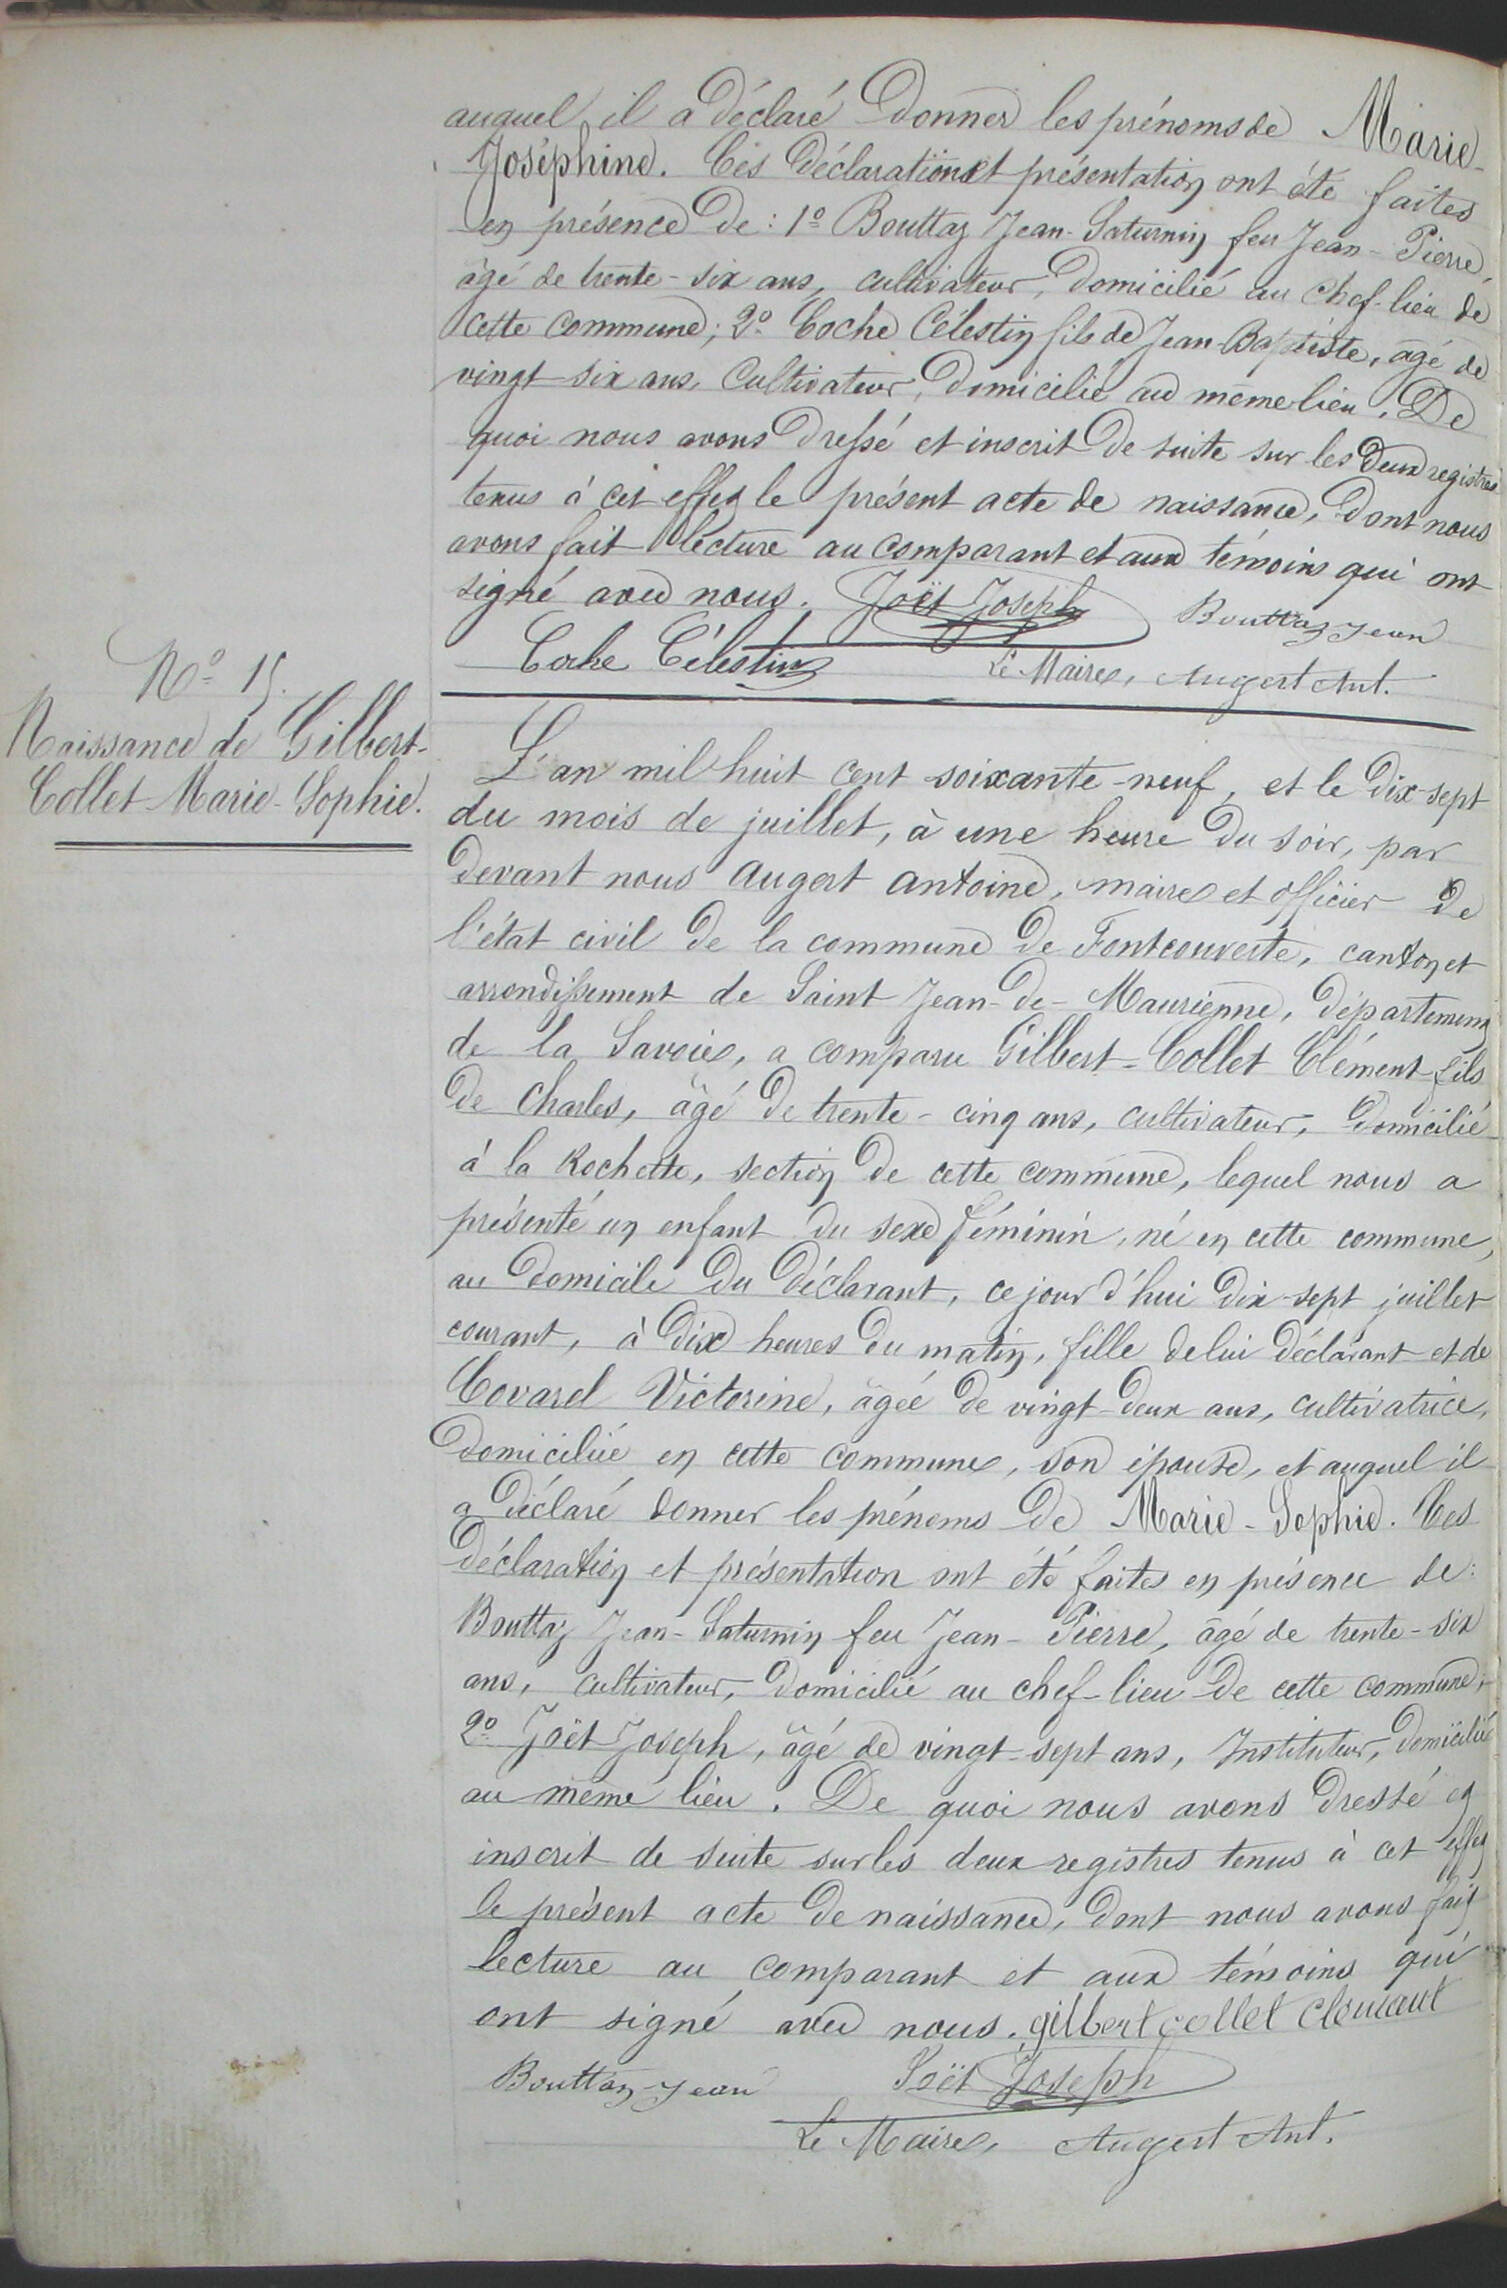 auquel il a déclaré donner les prénoms de Marie-
Joséphine. Ces déclaration et présentation ont été faites
en présence de : 1º Bouttaz Jean-Saturnin feu Jean-Pierre,
âgé de trente-six ans, cultivateur, domicilié au chef-lieu de
cette commune; 2º Coche Célestin fils de Jean-Baptiste, âgé de
vingt-six ans, cultivateur, domicilié au même lieu. De
quoi nous avons dressé et inscrit de suite sur les deux registres
tenus à cet effet le présent acte de naissance, dont nous
avons fait lecture au comparant et aux témoins qui ont
signé avec nous. Joët Joseph Bouttaz Jean
Coche Célestin Le Maire, Augert Ant.
Nº 15.
Naissance de Gilbert-
Collet Marie-Sophie.
L'an mil huit cent soixante-neuf, et le dix-sept
du mois de juillet, à une heure du soir, par
devant nous Augert Antoine, maire et officier de
l'état civil de la commune de Fontcouverte, canton et
arrondissement de Saint Jean-de-Maurienne, département
de la Savoie, a comparu Gilbert-Collet Clément fils
de Charles, âgé de trente-cinq ans, cultivateur, domicilié
à la Rochette, section de cette commune, lequel nous a
présenté un enfant du sexe féminin, né en cette commune,
au domicile du déclarant, ce jour d'hui dix-sept juillet
courant, à dix heures du matin, fille de lui déclarant et de
Covarel Victorine, âgée de vingt-deux ans, cultivatrice,
domiciliée en cette commune, son épouse, et auquel il
a déclaré donner les prénoms de Marie-Sophie. Ces
déclaration et présentation ont été faites en présence de :
Bouttaz Jean-Saturnin feu Jean-Pierre, âgé de trente-six
ans, cultivateur, domicilié au chef-lieu de cette commune;
2º Joët Joseph, âgé de vingt-sept ans, Instituteur, domicilié
au même lieu. De quoi nous avons dressé et
inscrit de suite sur les deux registres tenus à cet effet
le présent acte de naissance, dont nous avons fait
lecture au comparant et aux témoins qui
ont signé avec nous. gilbert collet
Bouttaz Jean Joët Joseph
Le Maire, Augert Ant.